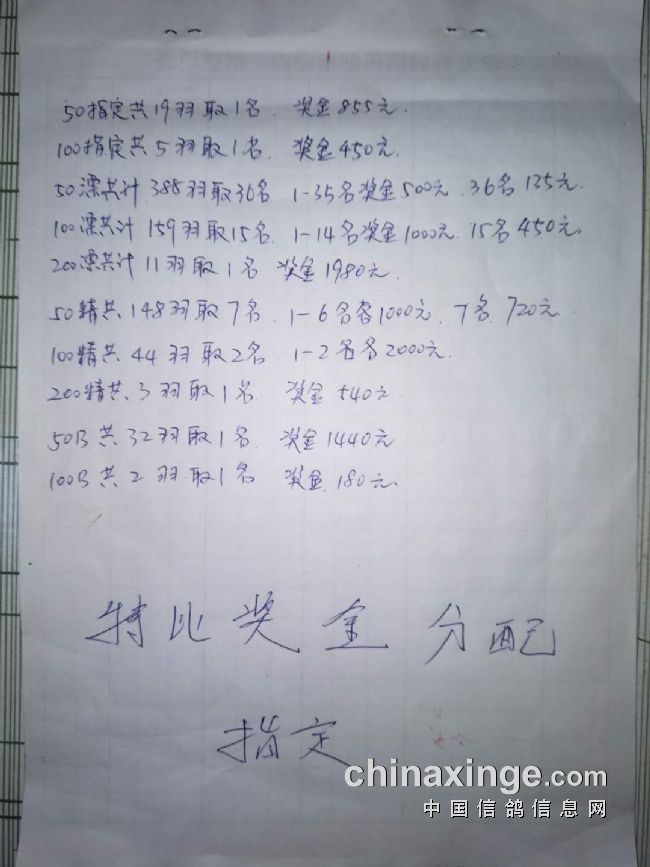 50指定共19羽取1名. 奖金855元.
100指定共5羽取1名. 奖金450元.
50漂共计388羽取36名. 1-35名奖金500元. 36名135元.
100漂共计159羽取15名. 1-14名奖金1000元. 15名450元.
200漂共计11羽取1名 奖金1980元.
50精共148羽取7名. 1-6名各1000元. 7名.720元.
100精共44羽取2名 1-2名各2000元.
200精共3羽取1名 奖金540元
50B共32羽取1名. 奖金1440元
100B共2羽取1名 奖金.180元.
特比奖金分配
指定
chinaxinge.com
中国信鸽信息网